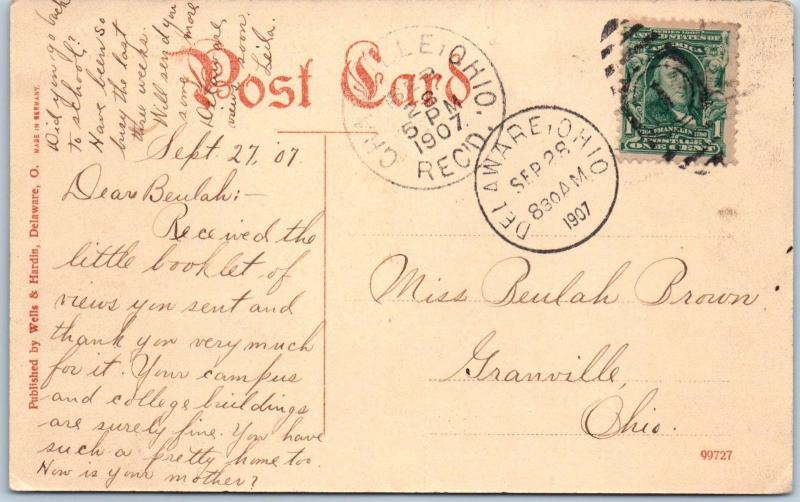 Post Card
MADE IN GERMANY.
Published by Wells & Hardin, Delaware, O.
Sept. 27, '07.
Dear Beulah:-
Received the
little booklet of
views you sent and
thank you very much
for it. Your campus
and college buildings
are surely fine. You have
such a pretty home too.
How is your mother?
Did you go back
to school?
Have been so
busy the last
three weeks.
Will send you
some more
views soon.
Leila.
GRANVILLE, OHIO.
SEP 28
5 PM
1907.
REC'D.
DELAWARE, OHIO
SEP 28
830 AM
1907
SERIES 1902
UNITED STATES OF
AMERICA
FRANKLIN
POSTAGE
1 ONE CENT 1
Miss Beulah Brown
Granville,
Ohio.
99727